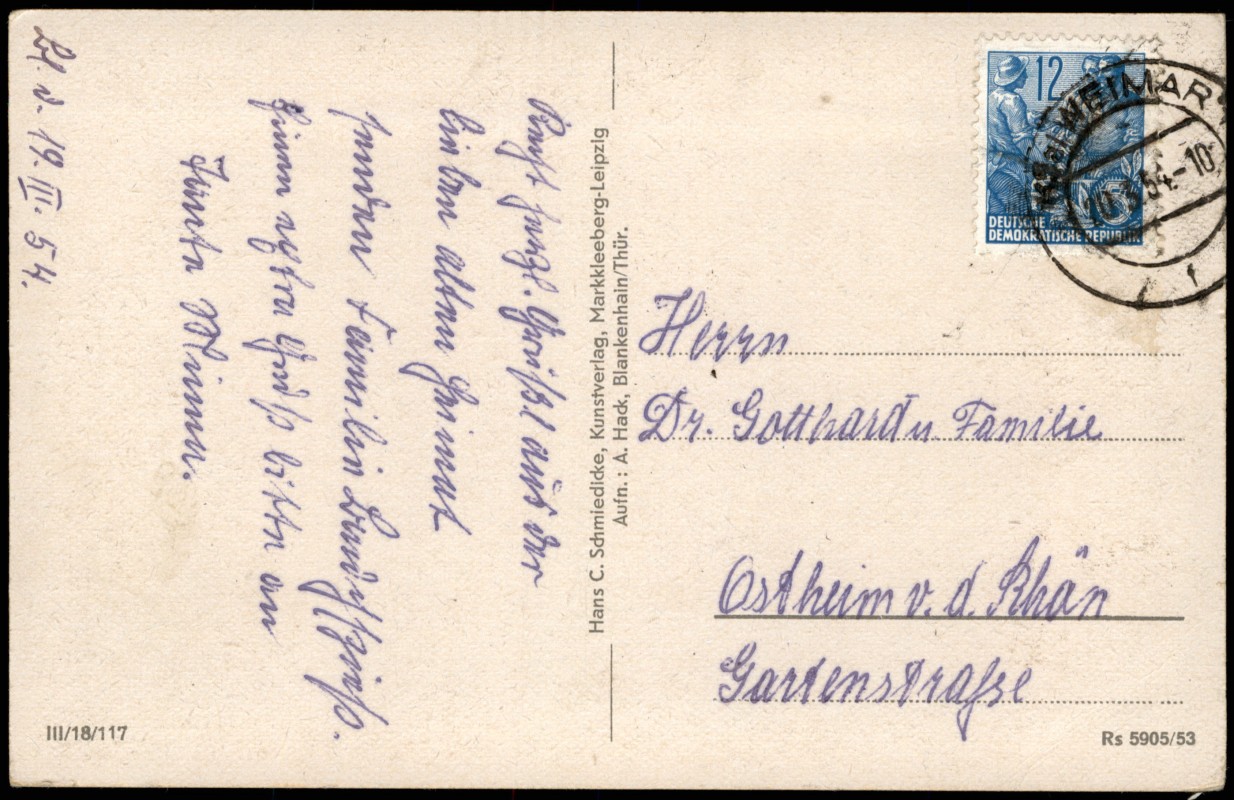 Recht herzl. Grüße aus der
lieben alten Heimat
senden Familie
Einen extra Gruß bitte an
Tante Minna.
Bl. d. 19. III. 54.
Hans C. Schmiedicke, Kunstverlag, Markkleeberg-Leipzig
Aufn.: A. Hack, Blankenhain/Thür.
12
DEUTSCHE
DEMOKRATISCHE REPUBLIK
WEIMAR
54.-10
Herrn
Dr. Gotthardt u Familie
Ostheim v. d. Rhön
Gartenstraße
III/18/117
Rs 5905/53